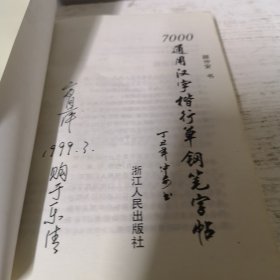 7000
通用汉字楷行草钢笔字帖
丁丑年中安书
浙江人民出版社
1999.3.
购于乐清